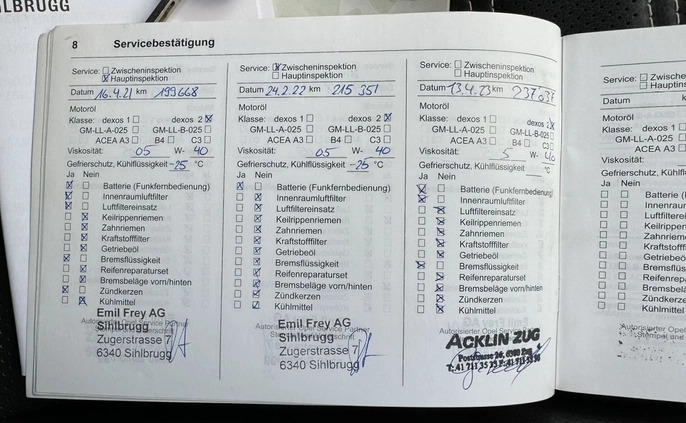 HLBRUGG
8 Servicebestätigung
Service: ☐ Zwischeninspektion
☒ Hauptinspektion
Datum 16.4.21 km 199668
Motoröl
Klasse: dexos 1 ☐ dexos 2 ☒
GM-LL-A-025 ☐ GM-LL-B-025 ☐
ACEA A3 ☐ B4 ☐ C3 ☐
Viskosität: 05 W- 40
Gefrierschutz, Kühlflüssigkeit -25 °C
Ja Nein
☒ ☐ Batterie (Funkfernbedienung)
☒ ☐ Innenraumluftfilter
☒ ☐ Luftfiltereinsatz
☐ ☒ Keilrippenriemen
☐ ☒ Zahnriemen
☐ ☒ Kraftstofffilter
☐ ☒ Getriebeöl
☒ ☐ Bremsflüssigkeit
☐ ☒ Reifenreparaturset
☐ ☒ Bremsbeläge vorn/hinten
☒ ☐ Zündkerzen
☐ ☒ Kühlmittel
Emil Frey AG
Sihlbrugg
Zugerstrasse 7
6340 Sihlbrugg
Service: ☒ Zwischeninspektion
☐ Hauptinspektion
Datum 24.2.22 km 215 351
Motoröl
Klasse: dexos 1 ☐ dexos 2 ☒
GM-LL-A-025 ☐ GM-LL-B-025 ☐
ACEA A3 ☐ B4 ☐ C3 ☐
Viskosität: 05 W- 40
Gefrierschutz, Kühlflüssigkeit -25 °C
Ja Nein
☒ ☐ Batterie (Funkfernbedienung)
☐ ☒ Innenraumluftfilter
☐ ☒ Luftfiltereinsatz
☐ ☒ Keilrippenriemen
☐ ☒ Zahnriemen
☐ ☒ Kraftstofffilter
☐ ☒ Getriebeöl
☐ ☒ Bremsflüssigkeit
☐ ☒ Reifenreparaturset
☐ ☒ Bremsbeläge vorn/hinten
☐ ☒ Zündkerzen
☐ ☒ Kühlmittel
Autorisierter Opel Service Partner
Emil Frey AG
Sihlbrugg
Zugerstrasse 7
6340 Sihlbrugg
Service: ☐ Zwischeninspektion
☐ Hauptinspektion
Datum 13.4.23 km
Motoröl
Klasse: dexos 1 ☐ dexos 2 ☒
GM-LL-A-025 ☐ GM-LL-B-025 ☐
ACEA A3 ☐ B4 ☐ C3 ☐
Viskosität: 5 W- 40
Gefrierschutz, Kühlflüssigkeit °C
Ja Nein
☒ ☐ Batterie (Funkfernbedienung)
☒ ☐ Innenraumluftfilter
☐ ☒ Luftfiltereinsatz
☐ ☒ Keilrippenriemen
☐ ☒ Zahnriemen
☐ ☒ Kraftstofffilter
☐ ☒ Getriebeöl
☒ ☐ Bremsflüssigkeit
☐ ☒ Reifenreparaturset
☐ ☒ Bremsbeläge vorn/hinten
☐ ☒ Zündkerzen
☐ ☒ Kühlmittel
Autorisierter Opel Service
ACKLIN ZUG
Poststrasse 26, 6300 Zug
Service: ☐ Zwische
☐ Haupti
Datum k
Motoröl
Klasse: dexos 1
GM-LL-A-025
ACEA A3
Viskosität:
Gefrierschutz, Kühlf
Ja Nein
☐ ☐ Batterie (
☐ ☐ Innenrau
☐ ☐ Luftfiltere
☐ ☐ Keilrippe
☐ ☐ Zahnriem
☐ ☐ Kraftstofff
☐ ☐ Getriebeö
☐ ☐ Bremsflü
☐ ☐ Reifenrep
☐ ☐ Bremsbel
☐ ☐ Zündkerz
☐ ☐ Kühlmitte